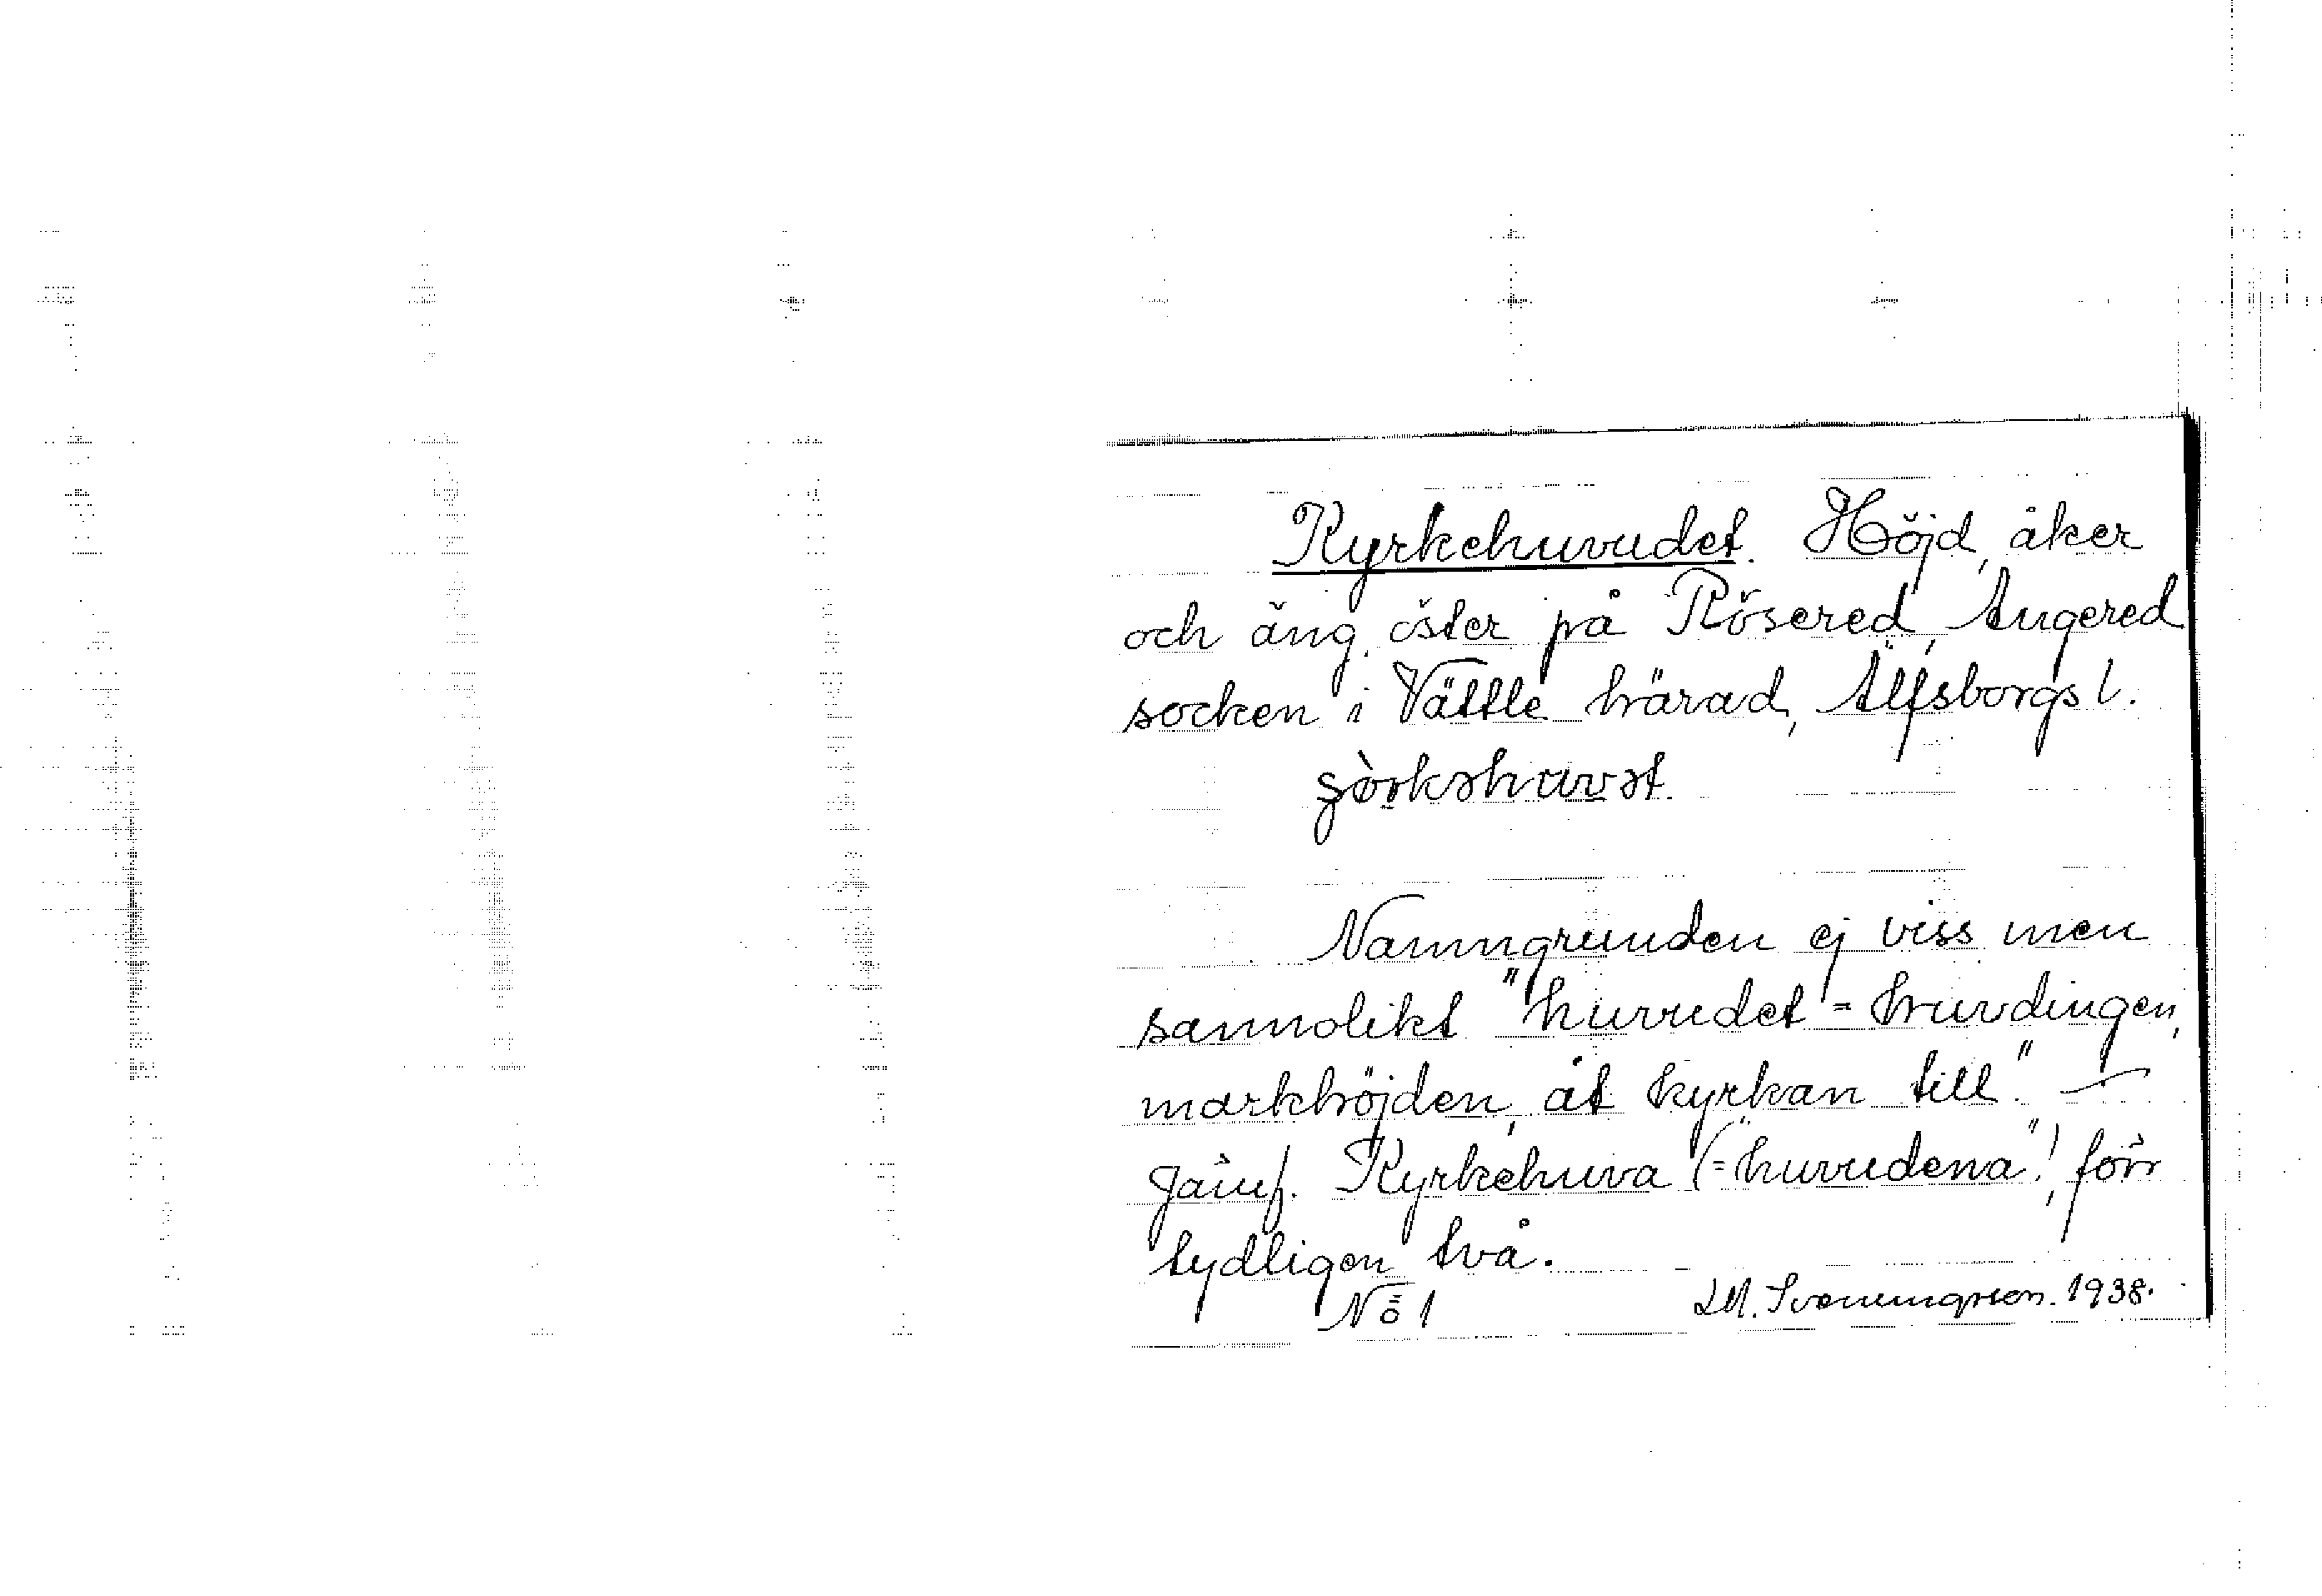 Kyrkehuvudet. Höjd, åker
och äng, öster på Rösered, Angered
socken i Vättle härad, Älfsborgs l.
Namngrunden ej viss men
sannolikt "huvudet = huvdingen,
markhöjden, åt kyrkan till". —
Jämf. Kyrkehuva (= "huvudena"), förr
tydligen två.
Nö 1 LM. Svenungsson. 1938.